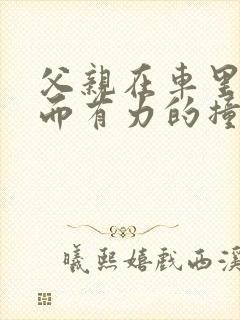 父親在車里
而有力的撞
曦熙嬉戲西溪